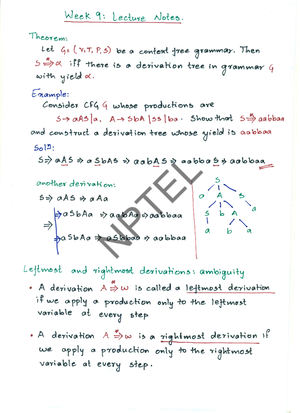 Week 9: Lecture Notes.
Theorem:
Let G = (V, T, P, S) be a context free grammar. Then
S ⇒* α iff there is a derivation tree in grammar G
with yield α.
Example:
Consider CFG G whose productions are
S → aAS | a, A → SbA | SS | ba. Show that S ⇒* aabbaa
and construct a derivation tree whose yield is aabbaa
Soln:
S ⇒ aAS ⇒ aSbAS ⇒ aabAS ⇒ aabbaS ⇒ aabbaa
another derivation:
S ⇒ aAS ⇒ aAa
⇒ aSbAa ⇒ aabAa ⇒ aabbaa
⇒ aSbAa ⇒ aSbbaa ⇒ aabbaa
S
a A S
S b A a
a b a
NPTEL
Leftmost and rightmost derivations: ambiguity
• A derivation A ⇒* w is called a leftmost derivation
if we apply a production only to the leftmost
variable at every step
• A derivation A ⇒* w is a rightmost derivation if
we apply a production only to the rightmost
variable at every step.